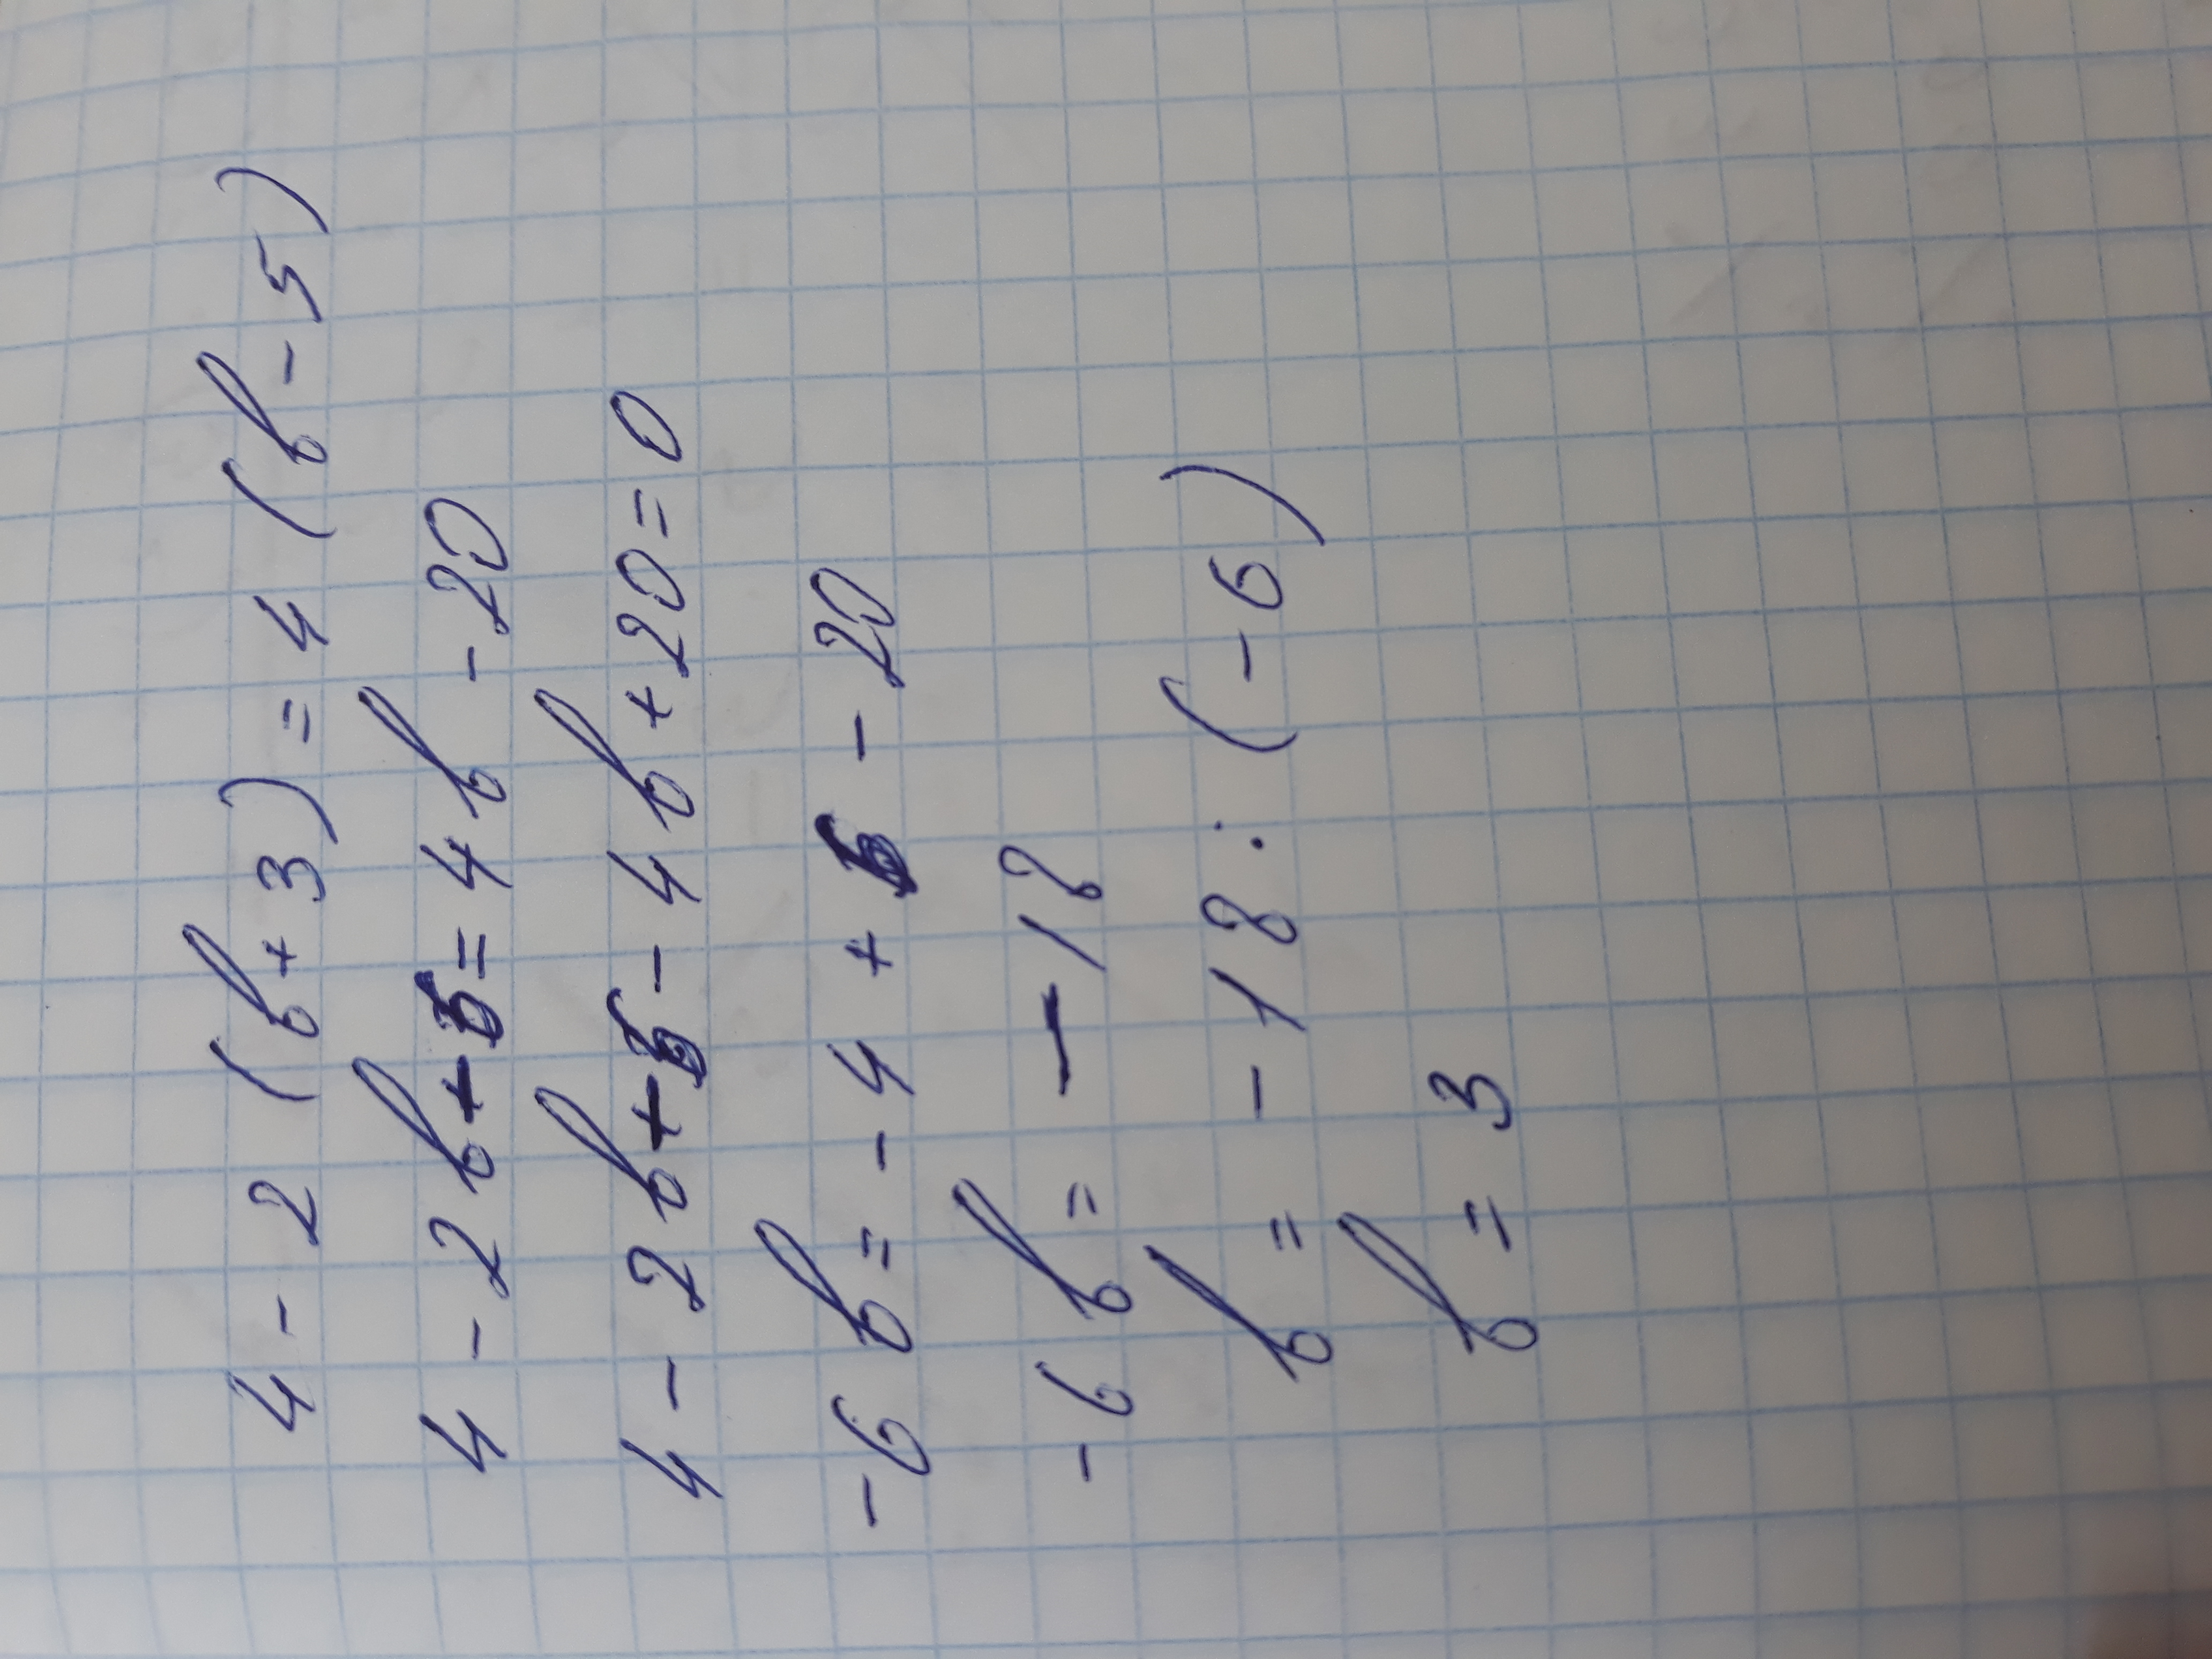 4 - 2 (b + 3) = 4 (b - 5)
4 - 2b + 6 = 4b - 20
4 - 2b + 6 - 4b + 20 = 0
-6b = -4 + 6 - 20
-6b = -18
b = -18 : (-6)
b = 3